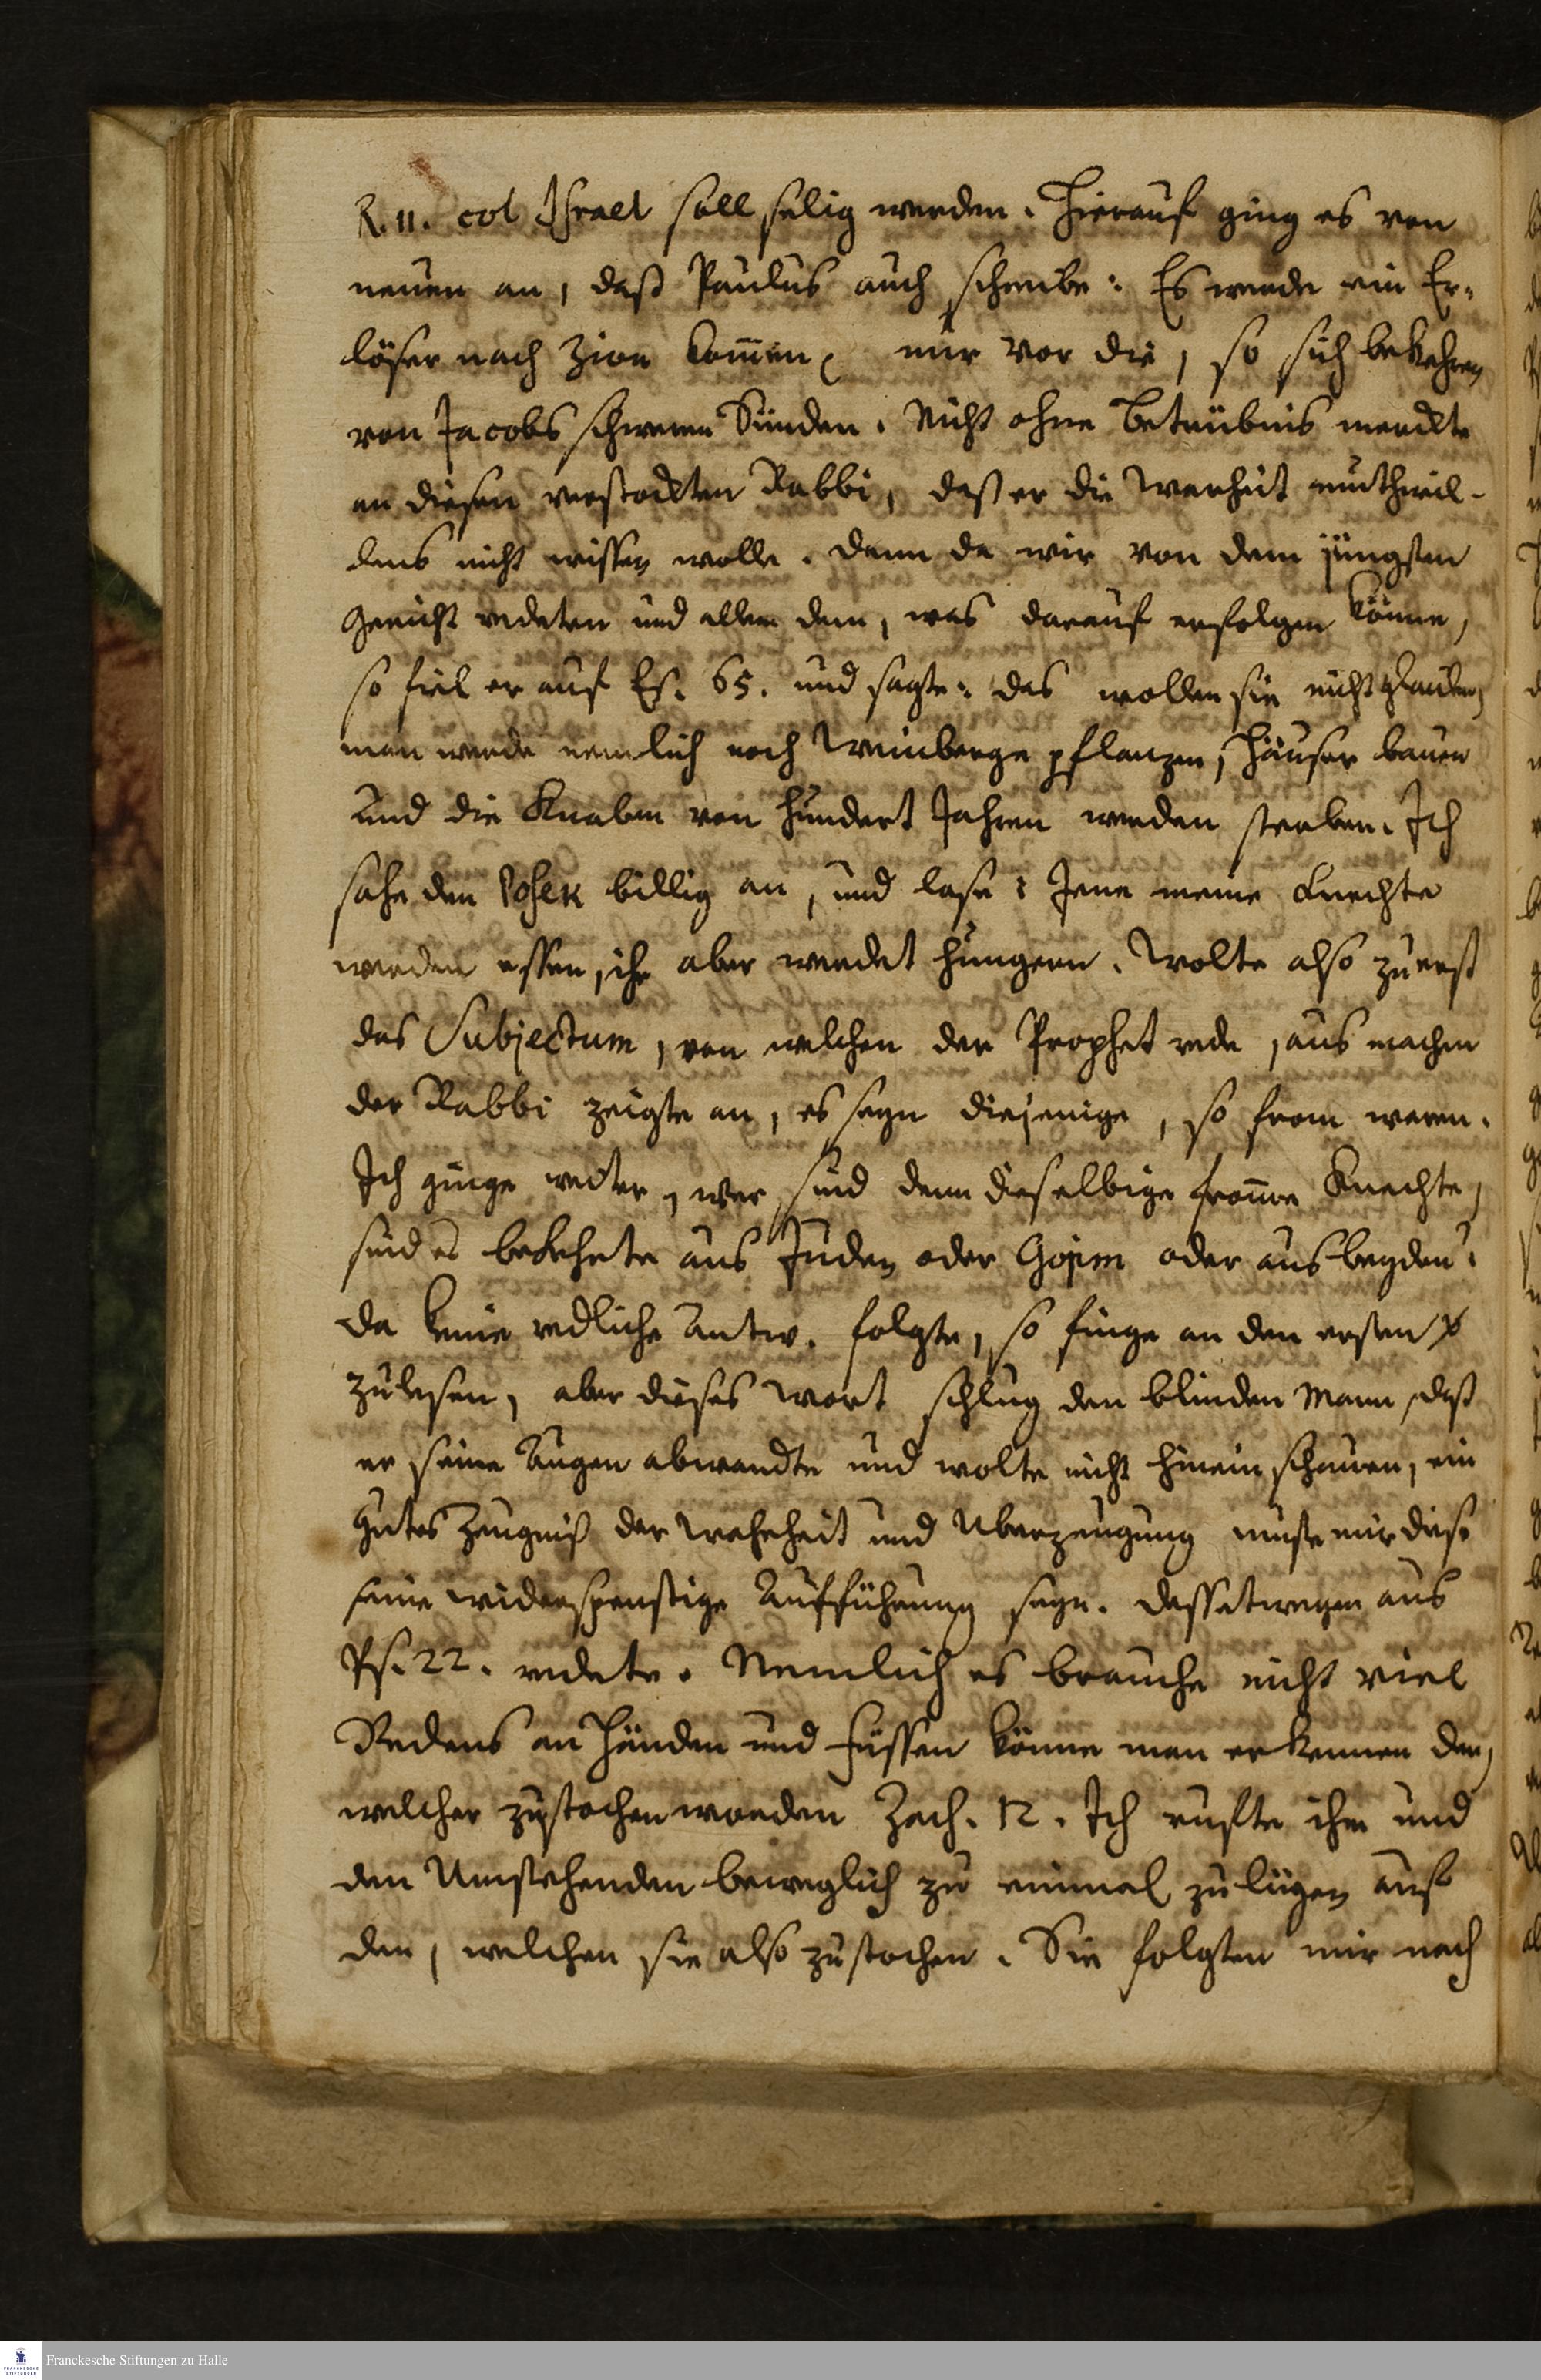 R. 11. col Israel soll selig werden. Hierauf ging es von
neuen an, daß Paulus auch schreibe: Es werde ein Er-
löser nach Zion kom̄en, nur vor die, so sich bekehren
von Jacobs schweren Sünden. Nicht ohne Betrübnis merckte
an diesen verstockten Rabbi, daß er die Warheit muthwil-
lens nicht wissen wolle. Denn da wir von dem jüngsten
Gericht redeten und allem dem, was darauf erfolgen könne,
so fiel er auf Es. 65. und sagte: das wollen sie nicht glauben,
man werde nemlich noch Weinberge pflanzen, Häuser bauen
und die Knaben von hundert Jahren werden sterben. Ich
sahe den Posek billig an, und lase: Jene meine Knechte
werden essen, ihr aber werdet hungern. Wolte also zu erst
das Subjectum, von welchen der Prophet rede, aus machen
der Rabbi zeigte an, es seyn diejenige, so from waren.
Ich ginge weiter, wer sind denn dieselbige from̄e Knechte,
sind es bekehrte aus Juden oder Gojim oder aus beyden?
Da keine redliche Antw. folgte, so finge an den ersten ꝟ
zu lesen, aber dieses Wort schlug den blinden Mann, daß
er seine Augen abwandte und wolte nicht hinein schauen, ein
gutes Zeugniß der Wahrheit und Uberzeugung muste mir diese
seine widerspenstige Aufführung seyn. Dessetwegen aus
Ps. 22. redete. Nemlich es brauche nicht viel
Redens an Händen und Füssen könne man erkennen den,
welcher zustochen worden Zach. 12. Ich rufte ihm und
den Umstehenden beweglich zu einmal zu lügen auf
den, welchen sie also zustochen. Sie folgten mir nach
Franckesche Stiftungen zu Halle